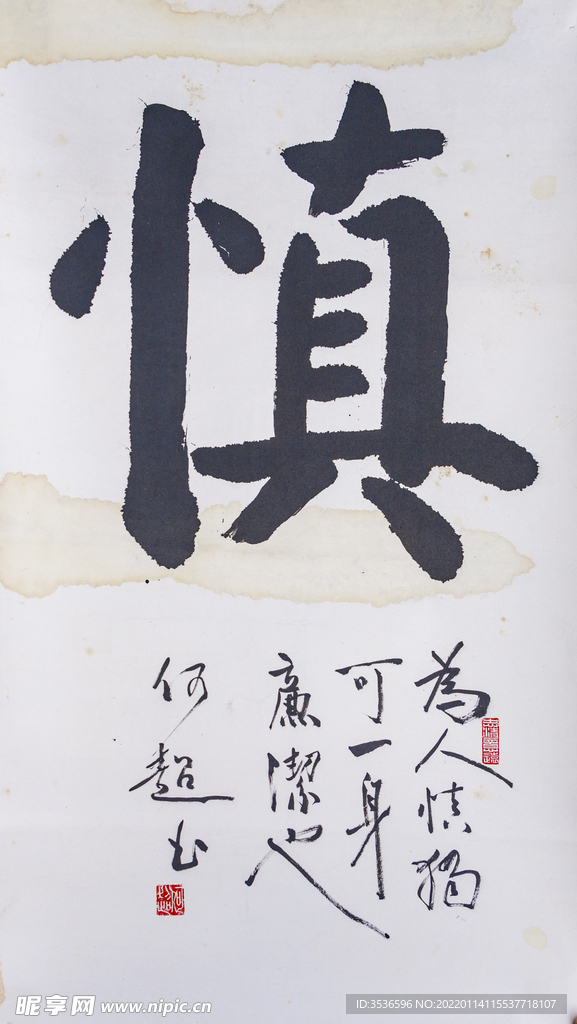 慎
為人慎獨
可一身
廉潔也
何超书
昵享网 www.nipic.cn
ID:3536596 NO:20220114115537718107